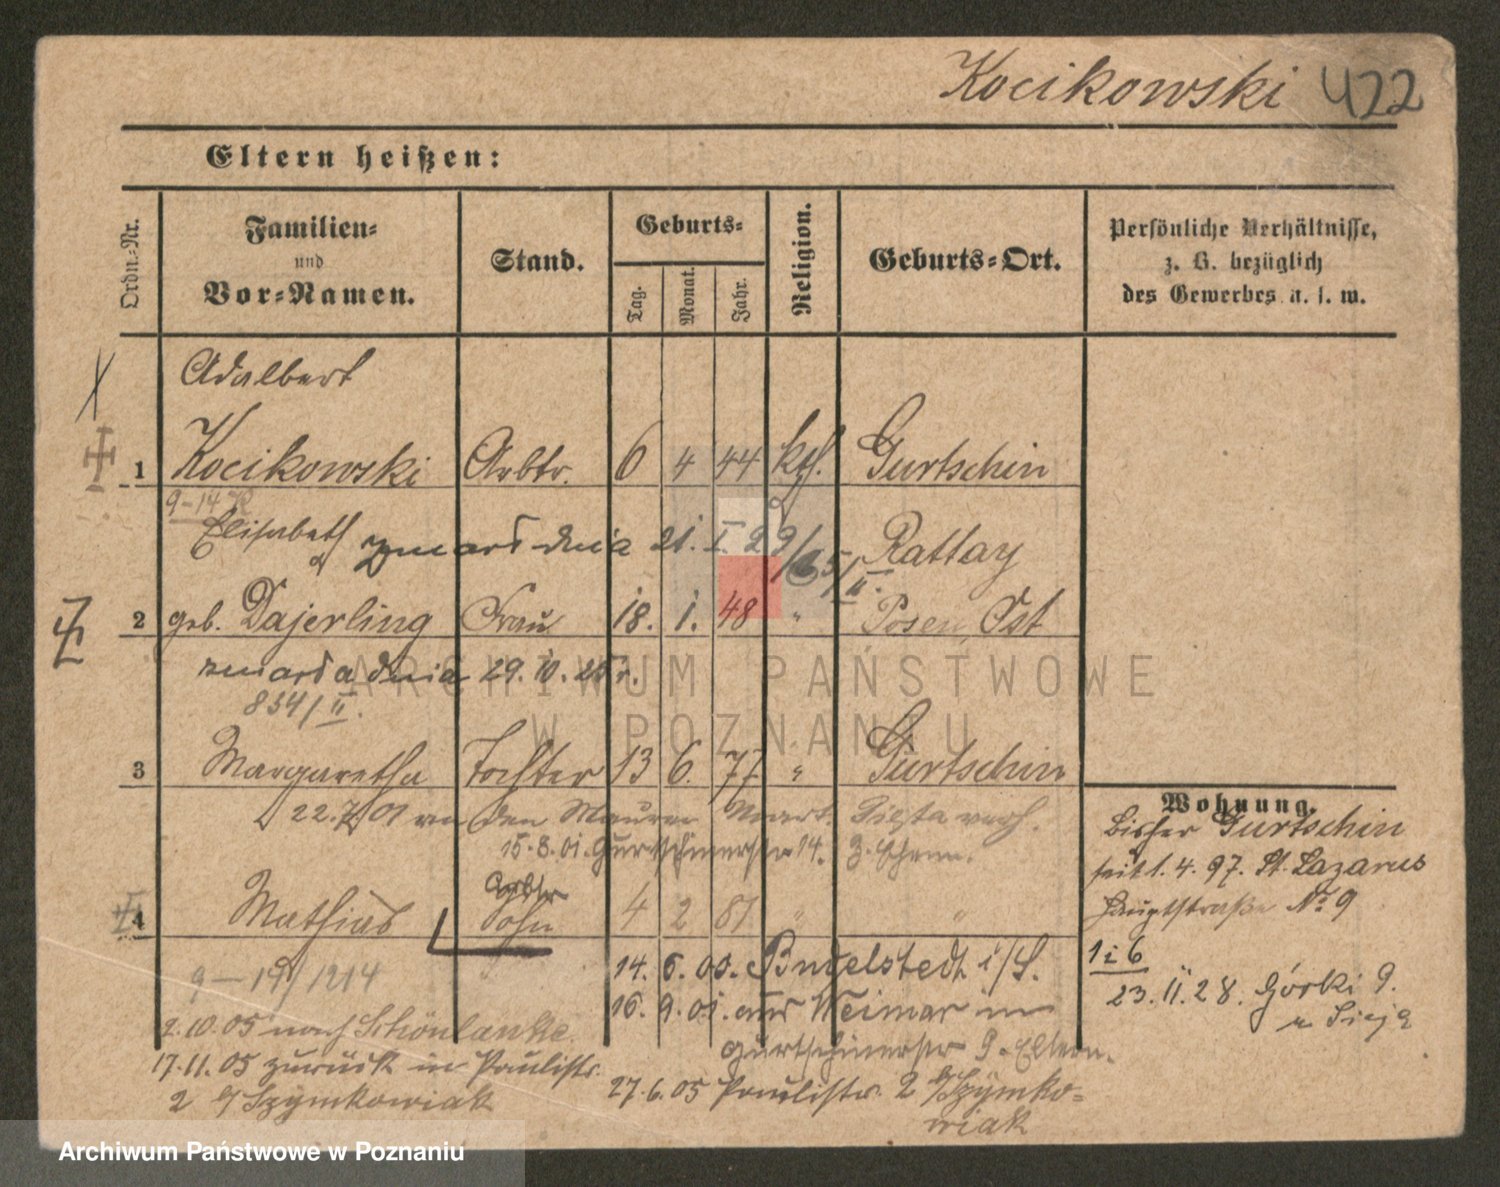 Kocikowski 422
Eltern heißen:
Ordn.-Nr.
Familien-
und
Vor-Namen.
Stand.
Geburts-
Tag.
Monat.
Jahr.
Religion.
Geburts-Ort.
Persönliche Verhältnisse,
z. B. bezüglich
des Gewerbes u. s. w.
Adalbert
1 Kocikowski Arbtr. 6 4 44 ktf. Gurtschin
9-14
Elisabeth zmarł dnia 21. I. 29 Rattay
2 geb. Dajerling Frau 18. 1. 48 " Posen, Ost
zmarła dnia 29. 10. 25 r.
834/II.
3 Margaretha Tochter 13 6. 77 " Gurtschin
22.7.01 den Maurer Mart. verh.
15.8.01. Gurtschinerstr 14.
Arbtr
4 Mathias Sohn 4 2 81 " "
9-19/1214
14. 6. 00.
16. 9. 01. aus Weimar
Gurtschinerstr 9. Eltern.
2.10.05 nach Schönlanke.
17.11.05 zurück in Paulistr.
2 b/ Szymkowiak
27.6.05 Paulistr. 2 b/ Szymko-
wiak
Wohnung.
Bisher Gurtschin
seit 1. 4. 97. St. Lazarus
Hauptstraße No 9
1 i 6
23. II. 28. Górki 9.
ARCHIWUM PAŃSTWOWE
W POZNANIU
Archiwum Państwowe w Poznaniu